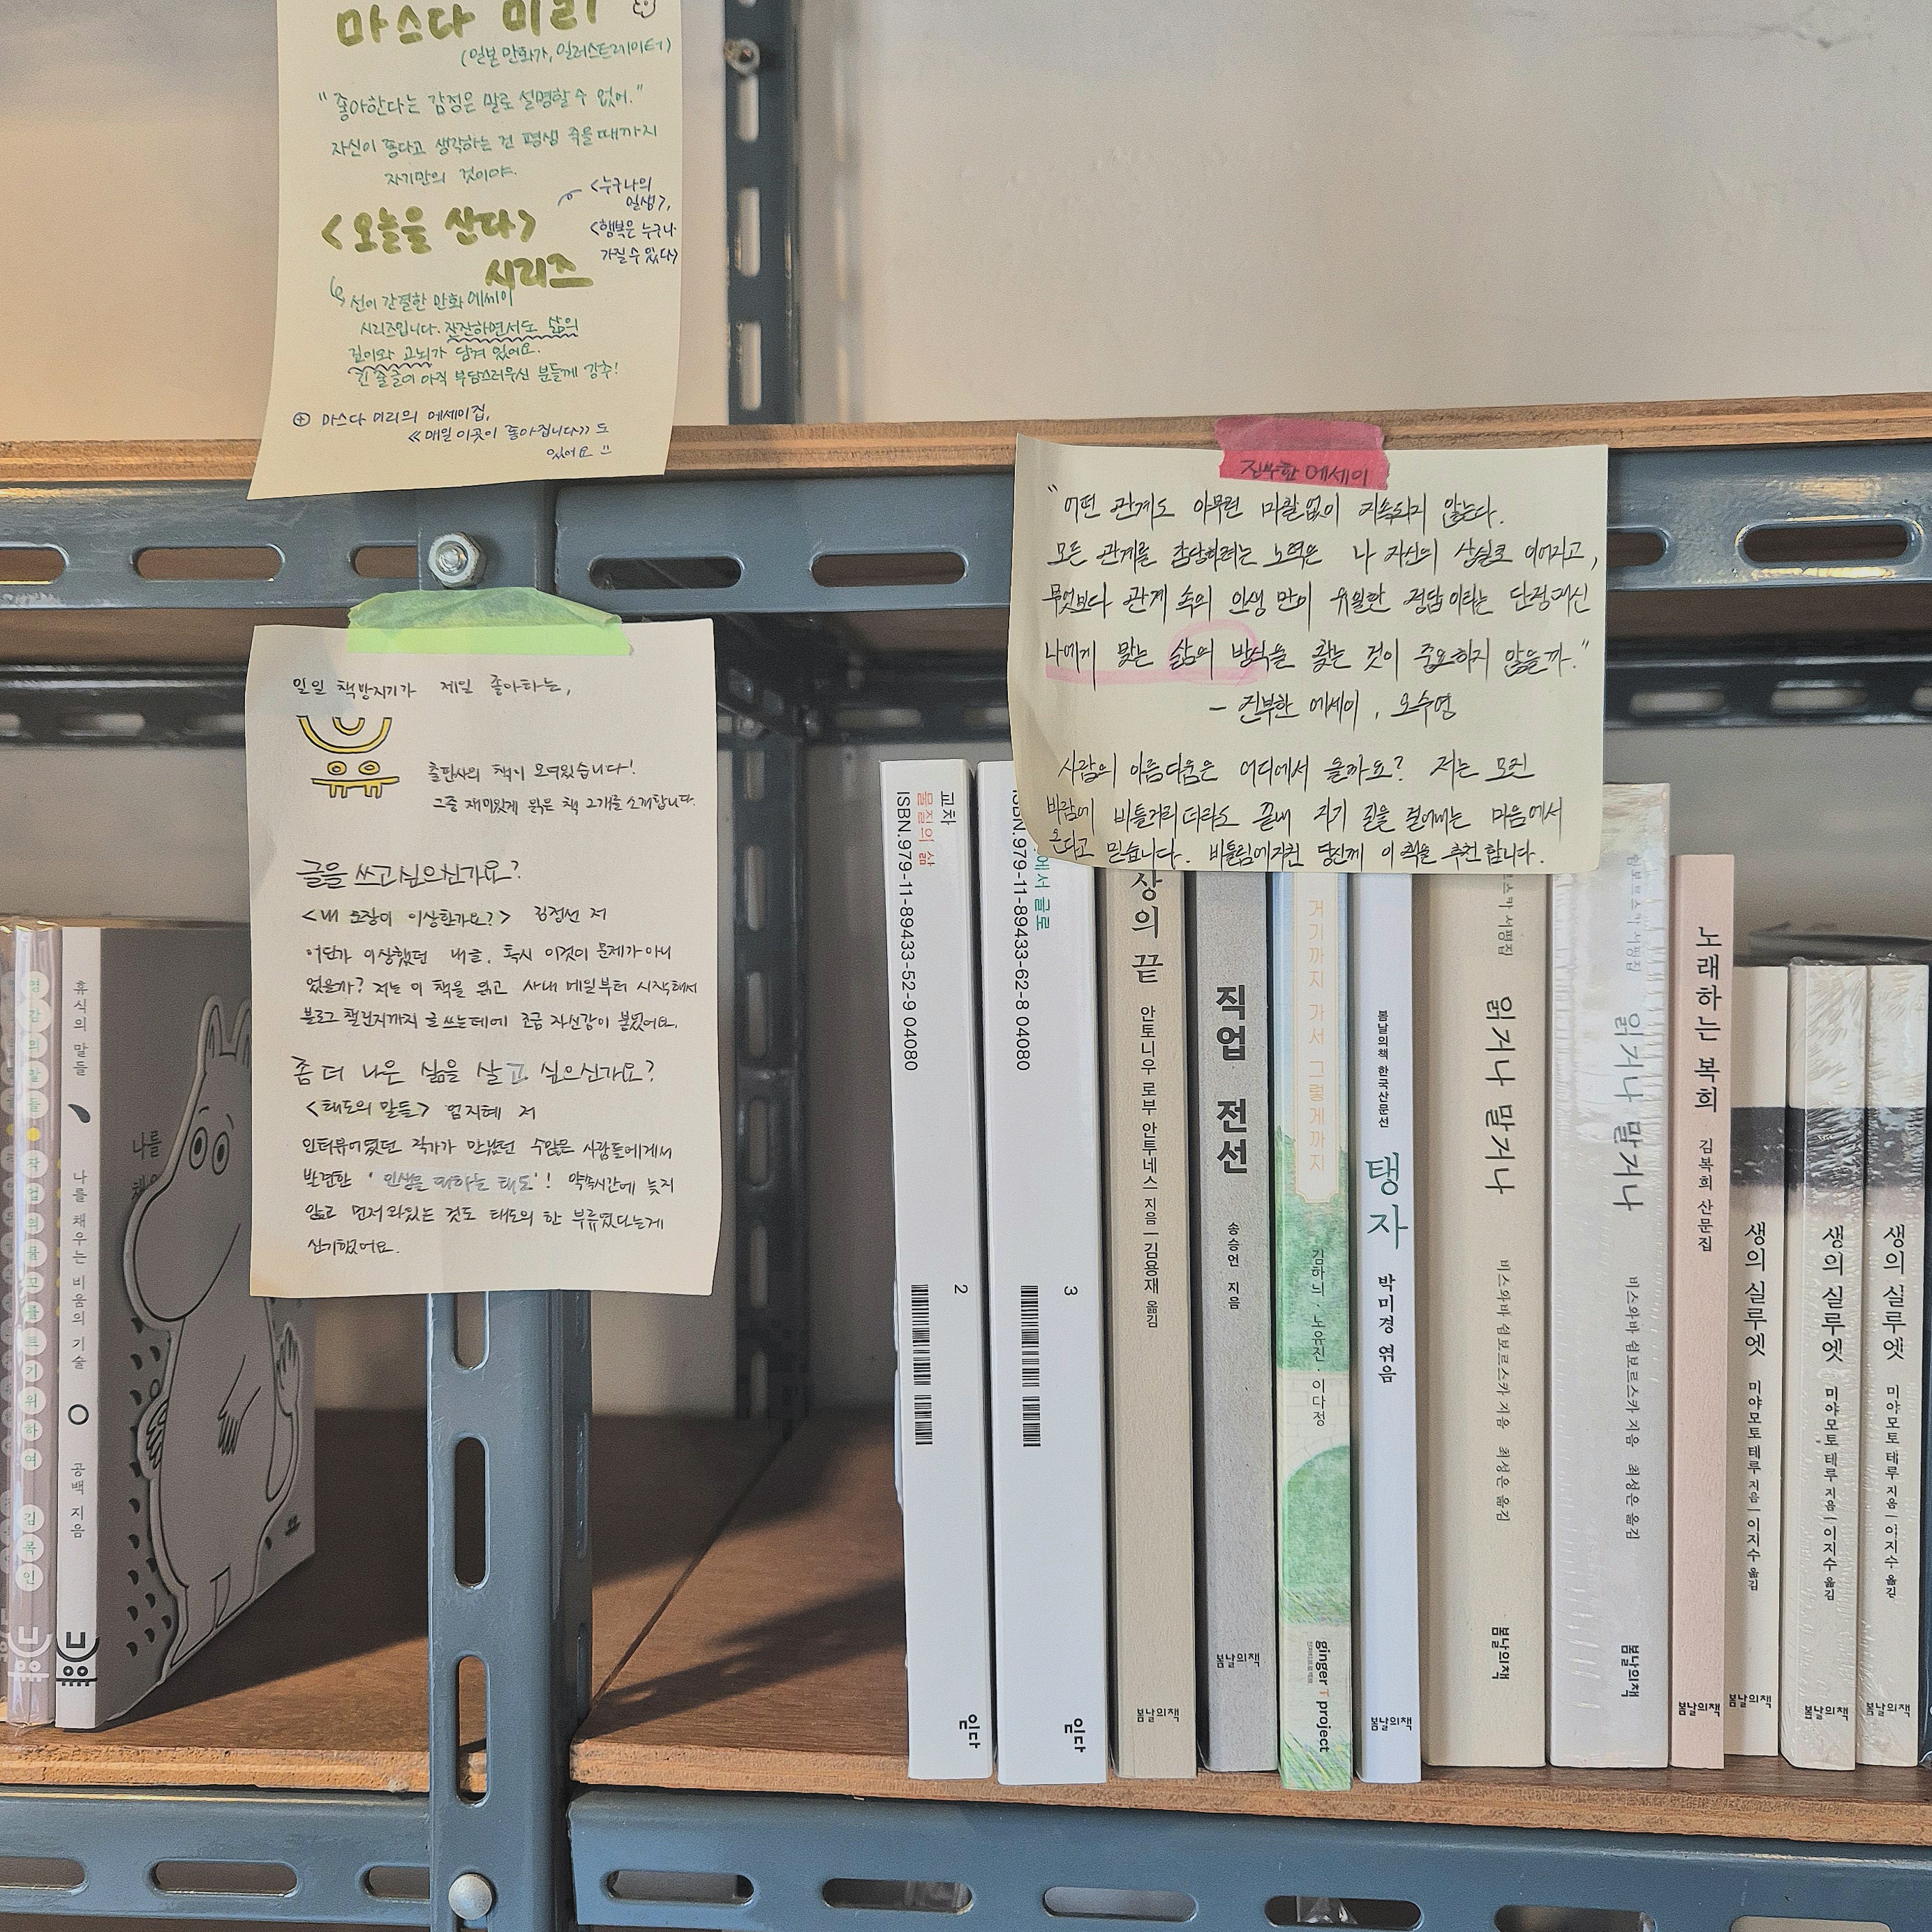 마스다 미리
(일본 만화가, 일러스트레이터)
"좋아한다는 감정은 말로 설명할 수 없어."
자신이 좋다고 생각하는 건 평생 죽을 때까지
자기만의 것이야.
<누구나의
일생>,
<행복은 누구나
가질 수 있다>
<오늘을 산다>
시리즈
선이 간결한 만화 에세이
시리즈입니다. 잔잔하면서도 삶의
깊이와 고뇌가 담겨 있어요.
긴 줄글이 아직 부담스러우신 분들께 강추!
⊕ 마스다 미리의 에세이집,
≪매일 이곳이 좋아집니다≫도
있어요
진부한 에세이
"어떤 관계도 아무런 마찰없이 지속되지 않는다.
모든 관계를 감당하려는 노력은 나 자신의 상실로 이어지고,
무엇보다 관계 속의 인생 만이 유일한 정답이라는 단정대신
나에게 맞는 삶의 방식을 찾는 것이 중요하지 않을까."
- 진부한 에세이, 오수영
사람의 아름다움은 어디에서 올까요? 저는 모진
바람에 비틀거리더라도 끝내 자기 길을 걸어내는 마음에서
온다고 믿습니다. 비틀림에 지친 당신께 이 책을 추천합니다.
일일 책방지기가 제일 좋아하는,
출판사의 책이 모여있습니다!
그중 재미있게 읽은 책 2개를 소개합니다.
글을 쓰고싶으신가요?
<내 문장이 이상한가요?> 김정선 저
어딘가 이상했던 내글, 혹시 이것이 문제가 아니
었을까? 저는 이 책을 읽고 사내 메일부터 시작해서
블로그 챌린지까지 글 쓰는데에 조금 자신감이 붙었어요.
좀 더 나은 삶을 살고 싶으신가요?
<태도의 말들> 엄지혜 저
인터뷰어였던 작가가 만났던 수많은 사람들에게서
발견한 '인생을 대하는 태도'! 약속시간에 늦지
않고 먼저 와있는 것도 태도의 한 부류였다는게
신기했어요.
영감의 말들 작업의 물꼬를 트기 위하여 김목인
휴식의 말들 나를 채우는 비움의 기술 공백 지음
나를
교차
물질의 삶
ISBN.979-11-89433-52-9 04080
2
읻다
에서 글로
ISBN.979-11-89433-62-8 04080
3
읻다
상의 끝 안토니우 로부 안투네스 지음 | 김용재 옮김
봄날의책
직업 전선 송승언 지음
봄날의책
거기까지 가서 그렇게까지
김하늬 · 노유진 · 이다정
ginger T project
봄날의책 한국산문선
탱자 박미경 엮음
봄날의책
쉼보르스카 서평집
읽거나 말거나
비스와바 쉼보르스카 지음 최성은 옮김
봄날의책
쉼보르스카 서평집
읽거나 말거나
비스와바 쉼보르스카 지음 최성은 옮김
봄날의책
노래하는 복희 김복희 산문집
봄날의책
생의 실루엣 미야모토 테루 지음 | 이지수 옮김
봄날의책
생의 실루엣 미야모토 테루 지음 | 이지수 옮김
봄날의책
생의 실루엣 미야모토 테루 지음 | 이지수 옮김
봄날의책